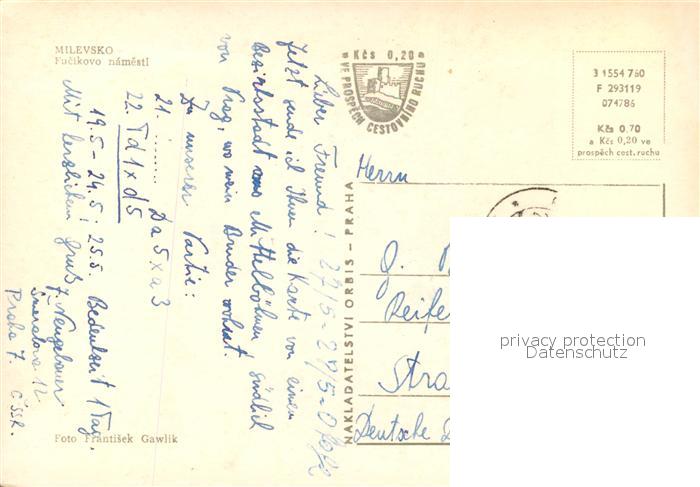 MILEVSKO
Fučíkovo náměstí
Lieber Freund!
Jetzt sende ich Ihnen die Karte von einem
Bezirksstadt aus Mittelböhmen südlich
von Prag, wo mein Bruder wohnt.
Zu unserer Partie:
21. ........ Da5xa3
22. Td1xd5
19.5 - 24.5! 25.5. Bedenkzeit 1 Tag.
Mit herzlichem Gruß
J. Neugebauer
Šmeralova 12
Praha 7. ČSSR.
Foto František Gawlik
Kčs 0,20
VE PROSPĚCH CESTOVNÍHO RUCHU
NAKLADATELSTVÍ ORBIS - PRAHA
3 1554 760
F 293119
074786
Kčs 0.70
a Kčs 0,20 ve
prospěch cest. ruchu
Herrn
G.
Reife
Stra
Deutsche D
privacy protection
Datenschutz